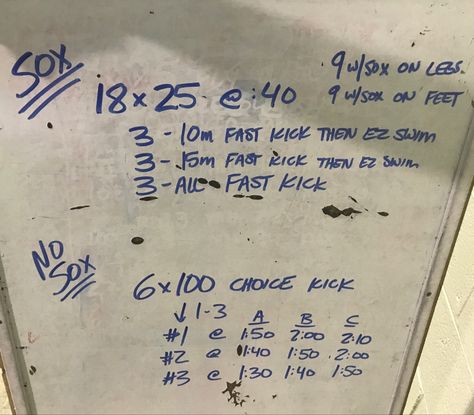 SOX
9 w/SOX ON LEGS
18 x 25 @ :40 9 w/SOX ON FEET
3 - 10m FAST KICK THEN EZ SWIM
3 - 15m FAST KICK THEN EZ SWIM
3 - ALL FAST KICK
NO
SOX
6 x 100 CHOICE KICK
↓ 1-3 A B C
#1 @ 1:50 2:00 2:10
#2 @ 1:40 1:50 2:00
#3 @ 1:30 1:40 1:50